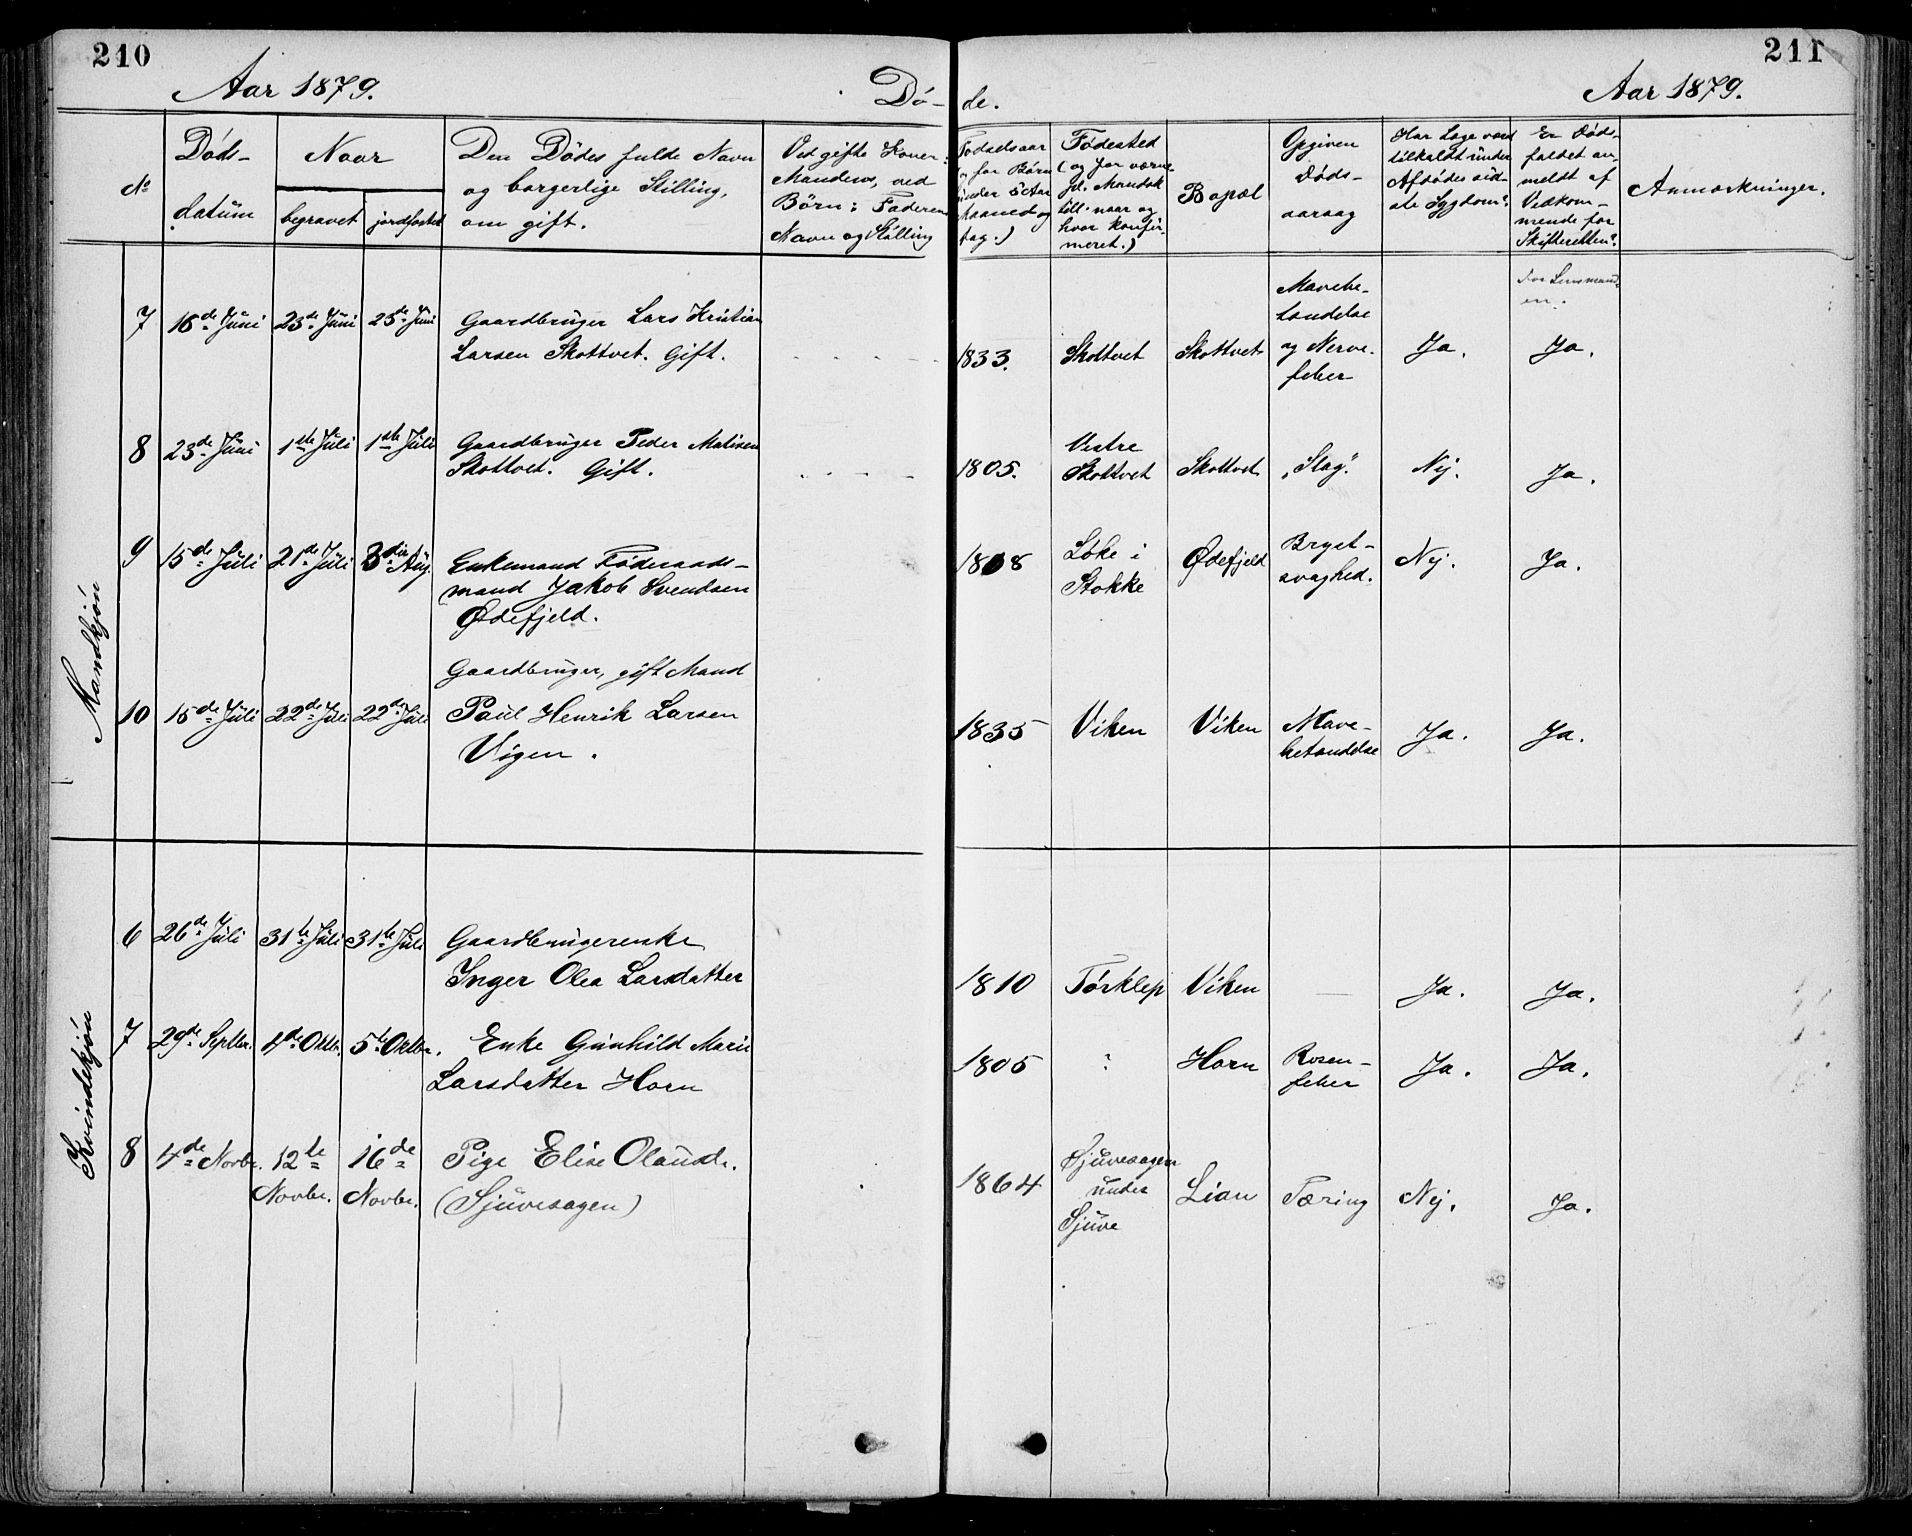 210
211
Aar 1879.
Dö-
de.
Aar 1879.
No
Döds-
datum
Naar
begravet
jordfæstet
Den Dödes fulde Navn
og borgerlige Stilling,
om gift.
Ved gifte Koner:
Mandens, ved
Börn: Faderens
Navn og Stilling
Födselsaar
for Börn
under 5 Aar
Maaned og
dag.)
Födested
(og for værne-
pl. Mandsk
till. naar og
hvor konfir-
meret.)
Bopæl
Opgiven
Döds-
aarsag
Har Læge været
tilkaldt under
Afdödes sid-
ste Sygdom?
Er Döds-
faldet an-
meldt af
Vedkom-
mende for
Skifteretten?
Anmærkninger.
Mandkjön
7
16de Juni
23de Juni
23de Juni
Gaardbruger Lars Kristian
Larsen Skottvet. Gift.
1833.
Skottvet
Skottvet
Mavebe-
tændelse
og Nerve-
feber
Ja.
For Lensmand-
en.
Ja.
8
23de Juni
1ste Juli
1ste Juli
Gaardbruger Peder Matisen
Skottvet. Gift.
1805.
Vestre
Skottvet
Skottvet
"Slag".
Nej.
Ja.
9
15de Juli
21de Juli
3die Aug.
Enkemand Föderaads-
mand Jakob Svendsen
Ødefjeld.
1808
Løke i
Stokke
Ødefjeld
Bryst-
svaghed.
Nej.
Ja.
10
15de Juli
22de Juli
22de Juli
Gaardbruger, gift Mand
Paul Henrik Larsen
Vigen.
1835
Viken
Viken
Mave-
betændelse
Ja.
Ja.
Kvindekjön
6
26de Juli
31te Juli
31te Juli
Gaardbrugerenke
Inger Olea Larsdatter
1810
Törklep
Viken
—
Ja.
Ja.
7
29de Septbr.
4de Oktbr.
5te Oktbr.
Enke Gunhild Marie
Larsdatter Horn
1805
?
Horn
Rosen-
feber
Ja.
Ja.
8
4de Novbr.
12te
Novbr.
16de
Novbr.
Pige Elise Olausdr.
(Sjuvesagen)
1864
Sjuvesagen
under
Sjuve
Lian
Tæring
Nej.
Ja.